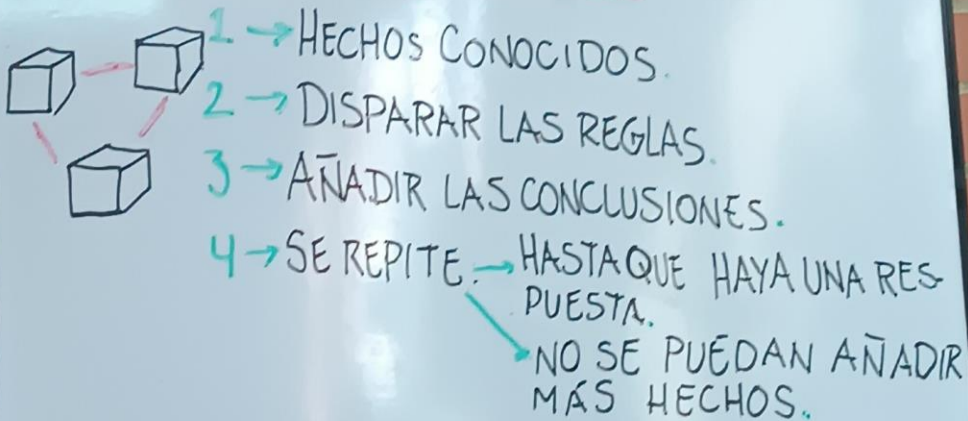 1 → HECHOS CONOCIDOS.
2 → DISPARAR LAS REGLAS.
3 → AÑADIR LAS CONCLUSIONES.
4 → SE REPITE. → HASTA QUE HAYA UNA RES-
PUESTA.
NO SE PUEDAN AÑADIR
MÁS HECHOS.